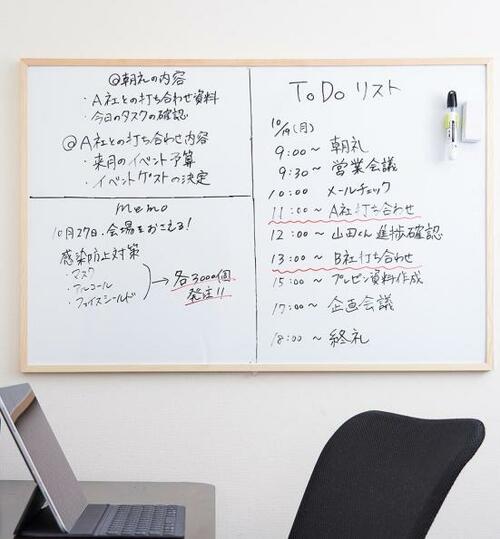 ◎朝礼の内容
・A社との打ち合わせ資料
・今日のタスクの確認
◎A社との打ち合わせ内容
・来月のイベント予算
・イベントゲストの決定
memo
10月27日.会場をおさえる!
感染防止対策
・マスク
・アルコール
・フェイスシールド
→各3000個
発注!!
ToDoリスト
10/19(月)
9:00~ 朝礼
9:30~ 営業会議
10:00 メールチェック
11:00~ A社打ち合わせ
12:00~ 山田くん進捗確認
13:00~ B社打ち合わせ
15:00~ プレゼン資料作成
17:00~ 企画会議
18:00~ 終礼